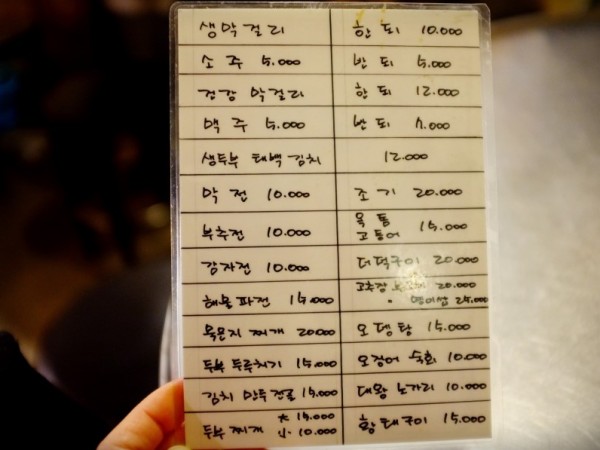 생막걸리 한되 10.000
소주 5.000 반되 5.000
건강 막걸리 한되 12.000
맥주 5.000 반되 7.000
생두부 태백김치 12.000
막전 10.000 조기 20.000
부추전 10.000 목통 고등어 15.000
감자전 10.000 더덕구이 20.000
해물파전 15.000 고추장 20.000
" 25.000
묵은지 찌개 20000 오뎅탕 15.000
두부 두루치기 15.000 오징어 숙회 10.000
김치 만두전골 15.000 대왕 노가리 10.000
두부찌개 大 15.000 황태구이 15.000
小 10.000